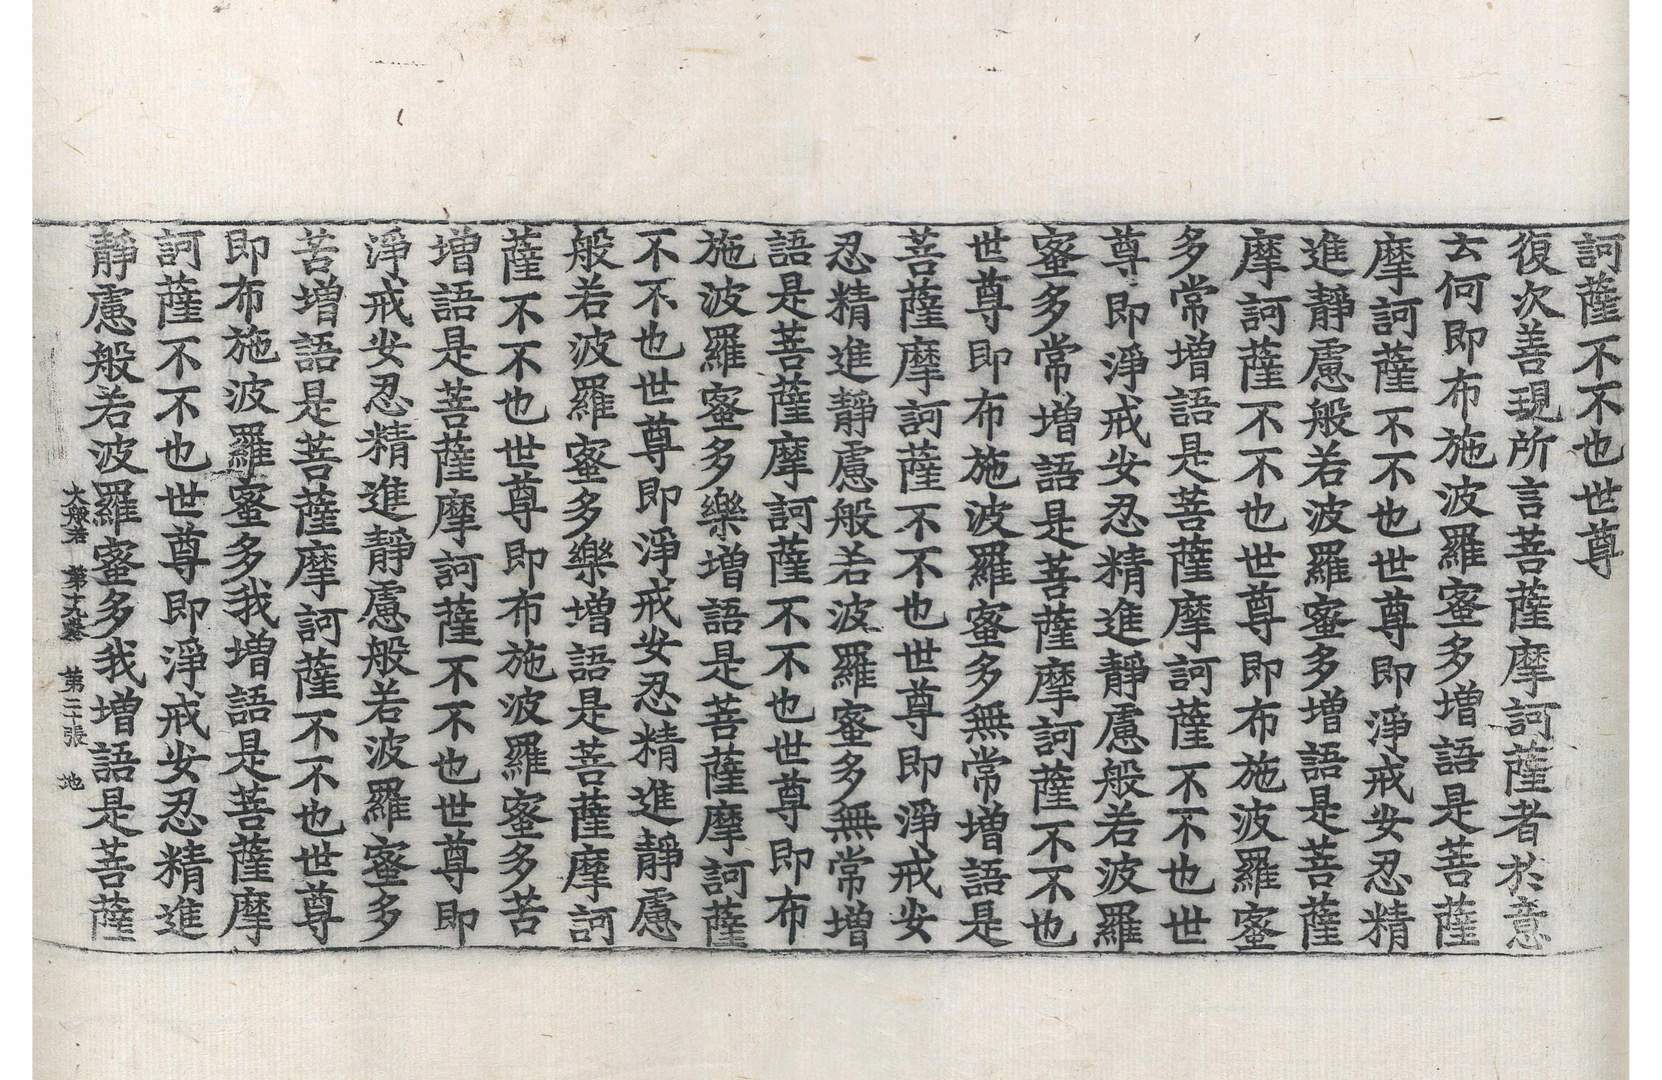 訶薩不不也世尊
復次善現所言菩薩摩訶薩者於意
云何即布施波羅蜜多增語是菩薩
摩訶薩不不也世尊即淨戒安忍精
進靜慮般若波羅蜜多增語是菩薩
摩訶薩不不也世尊即布施波羅蜜
多常增語是菩薩摩訶薩不不也世
尊即淨戒安忍精進靜慮般若波羅
蜜多常增語是菩薩摩訶薩不不也
世尊即布施波羅蜜多無常增語是
菩薩摩訶薩不不也世尊即淨戒安
忍精進靜慮般若波羅蜜多無常增
語是菩薩摩訶薩不不也世尊即布
施波羅蜜多樂增語是菩薩摩訶薩
不不也世尊即淨戒安忍精進靜慮
般若波羅蜜多樂增語是菩薩摩訶
薩不不也世尊即布施波羅蜜多苦
增語是菩薩摩訶薩不不也世尊即
淨戒安忍精進靜慮般若波羅蜜多
苦增語是菩薩摩訶薩不不也世尊
即布施波羅蜜多我增語是菩薩摩
訶薩不不也世尊即淨戒安忍精進
靜慮般若波羅蜜多我增語是菩薩
大般若 第十九卷 第二十張 地